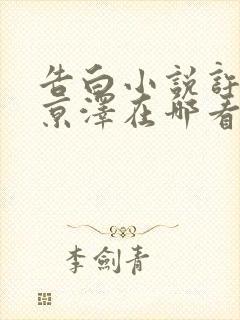 告白小説許
京澤在哪看
李劍青